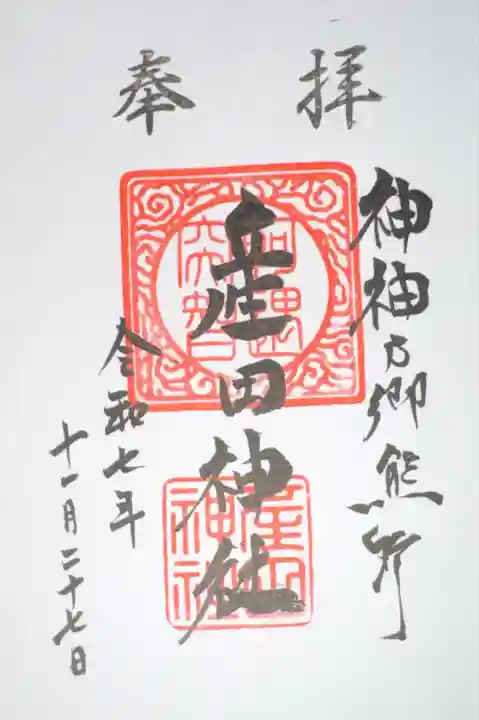 奉拝
神神乃郷熊野
産田神社
令和七年
十一月二十七日
産田神社